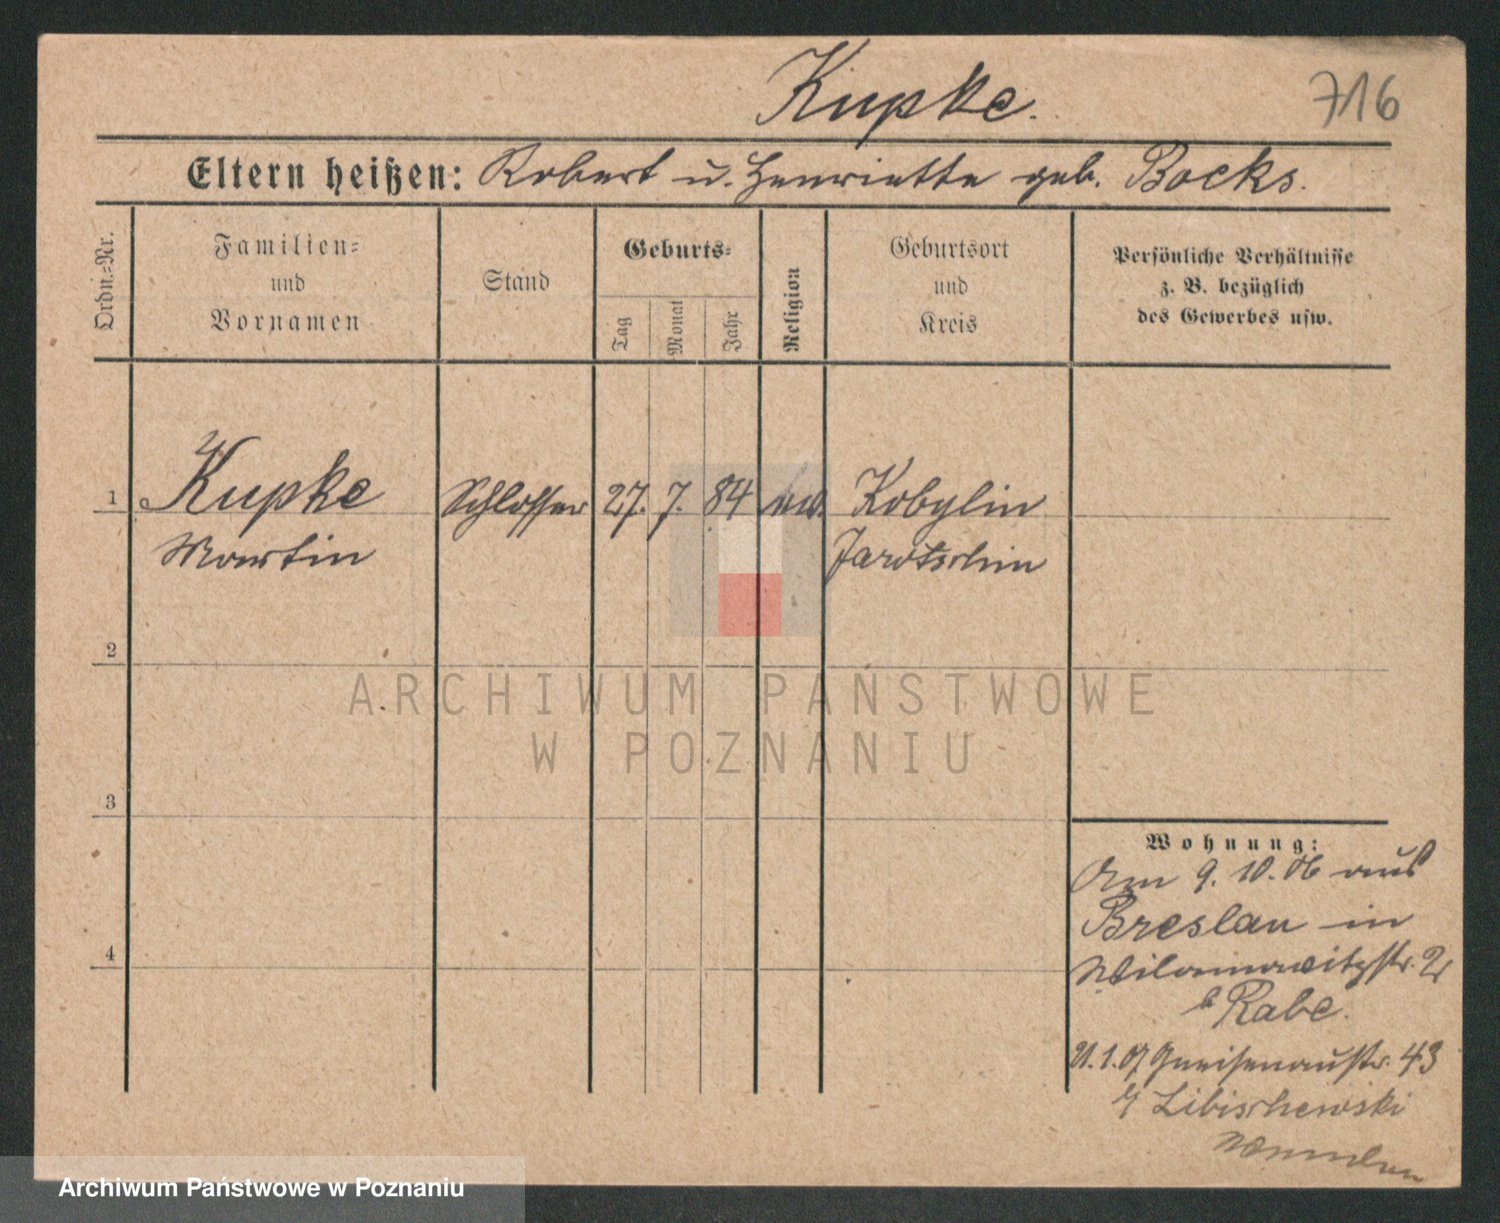 Kupke.
716
Eltern heißen: Robert u. Henriette geb. Bocks.
Ordn.=Nr.
Familien=
und
Vornamen
Stand
Geburts=
Tag
Monat
Jahr
Religion
Geburtsort
und
Kreis
Persönliche Verhältnisse
z. B. bezüglich
des Gewerbes usw.
1 Kupke Schlosser 27. 7. 84 ev. Kobylin
Martin Jarotschin
2
3
4
ARCHIWUM PAŃSTWOWE
W POZNANIU
Wohnung:
Am 9. 10. 06 aus
Breslau in
Wilamowitzstr. 2
b Rabe.
21.1.07 Gneisenaustr. 43
Libischewski
Archiwum Państwowe w Poznaniu